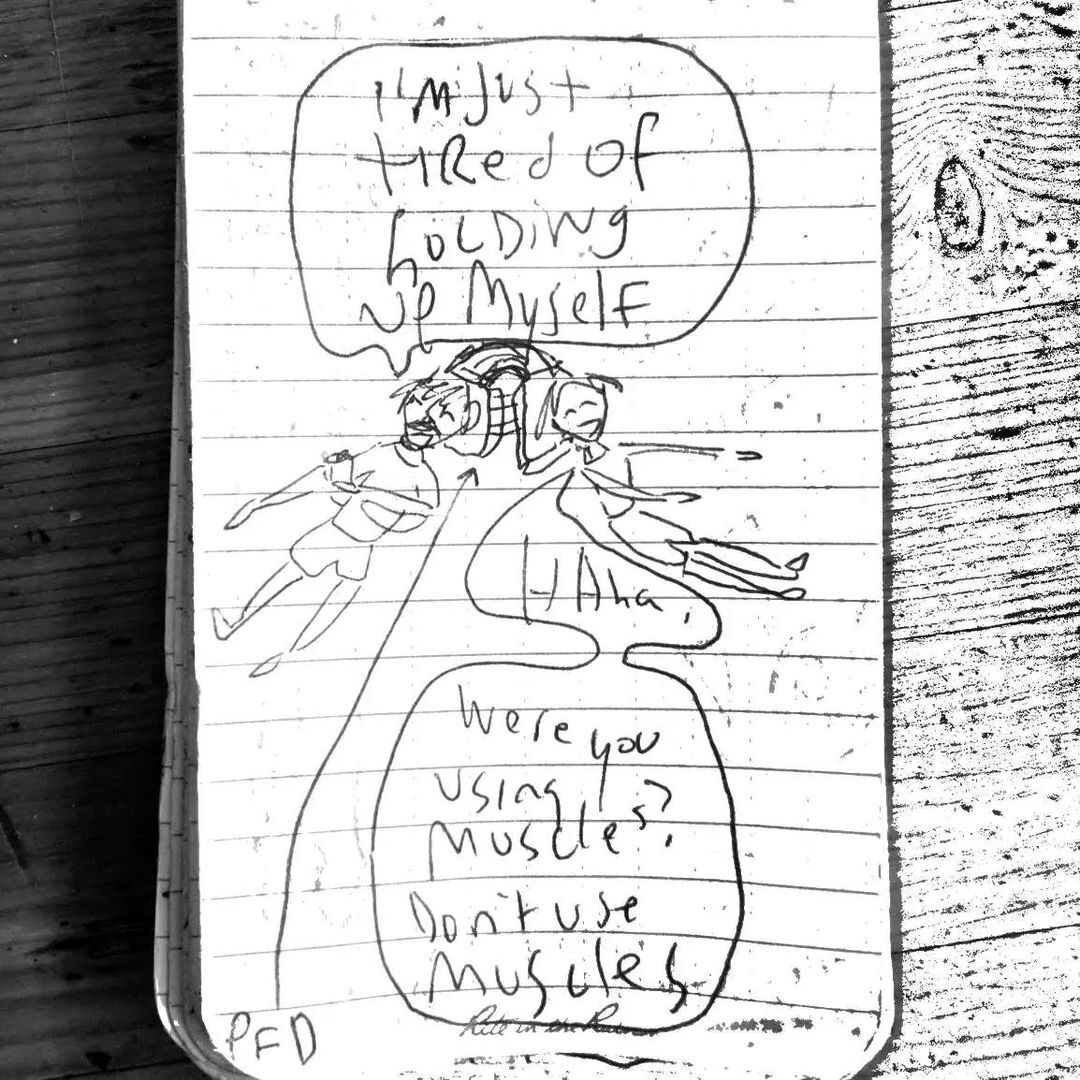 I'M JUST
TIRED OF
HOLDING
UP MYSELF
HAha,
Were you
using
Muscles?
Don't use
Muscles
PFD
Rite in the Rain